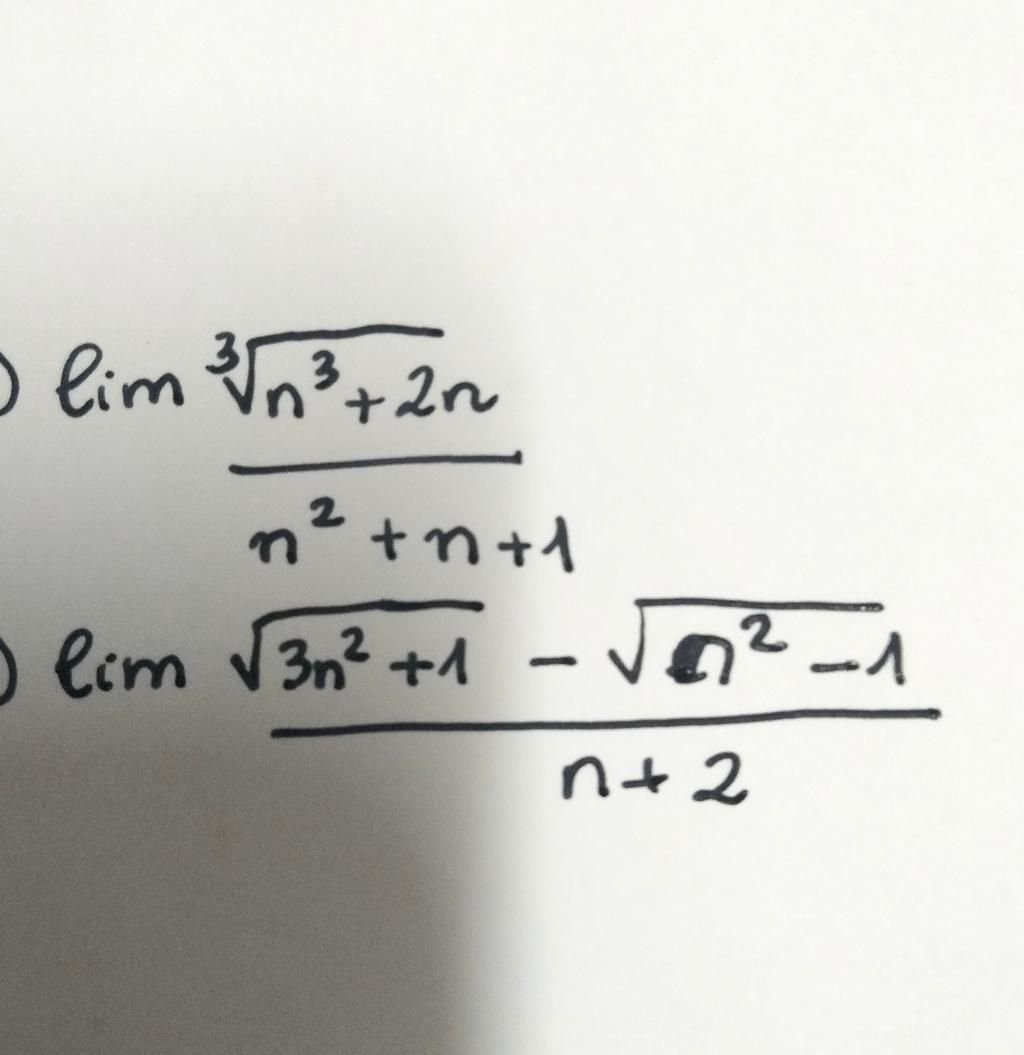 ) lim ∛(n³+2n)
n²+n+1
) lim √(3n²+1) - √(n²-1)
n+2